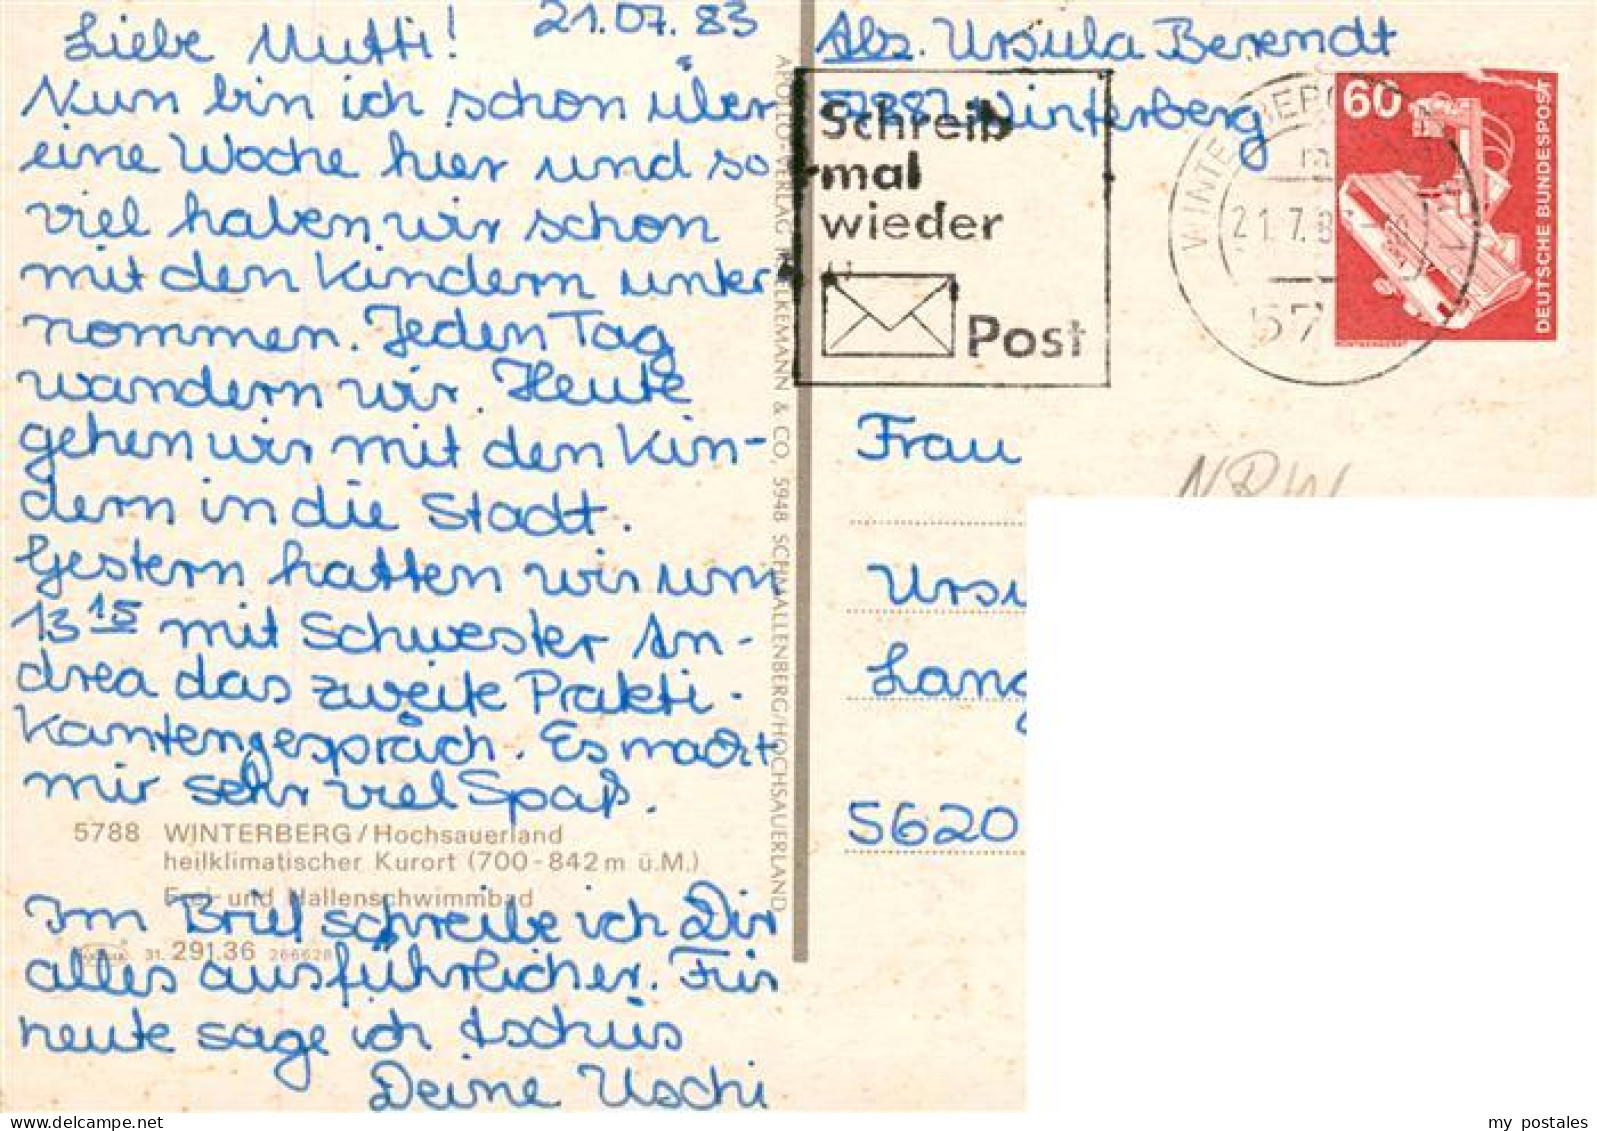 21.07.83
Liebe Mutti!
Nun bin ich schon über
eine Woche hier und so
viel haben wir schon
mit den Kindern unter
nommen. Jeden Tag
wandern wir. Heute
gehen wir mit den Kin-
dern in die Stadt.
Gestern hatten wir um
13 15 mit Schwester An-
drea das zweite Prakti-
kantengespräch. Es macht
mir sehr viel Spaß.
5788 WINTERBERG/Hochsauerland
heilklimatischer Kurort (700-842 m ü.M.)
Frei- und Hallenschwimmbad
Im Brief schreibe ich Dir
31. 291.36 266628
alles ausführlicher. Für
heute sage ich tschüs
Deine Uschi
APOLLO-VERLAG & CO, 5948 SCHMALLENBERG/HOCHSAUERLAND
Abs. Ursula Berendt
Winterberg
Schreib
mal
wieder
Post
21.7.8
57
60
DEUTSCHE BUNDESPOST
Frau
NRW
Ursu
Lang
5620
my postales